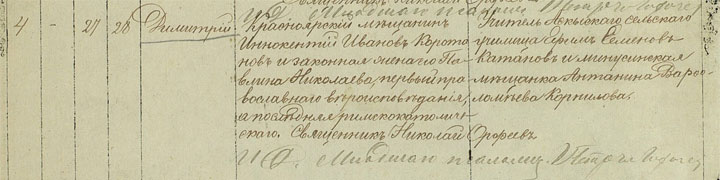 4 - 27 28 Димитрій
Красноярскій мѣщанинъ
Иннокентій Ивановъ Корота
новъ и законная жена его Па
влина Николаева, первый пра
вославнаго вѣроисповѣданія,
а послѣдняя римскокатоличе
скаго. Священникъ Николай Орфеевъ
Учитель Аскызскаго сельскаго
училища Ефимъ Семеновъ
Катановъ и минусинская
мѣщанка Антанина Варѳо
ломѣева Корнилова.
И. Д.